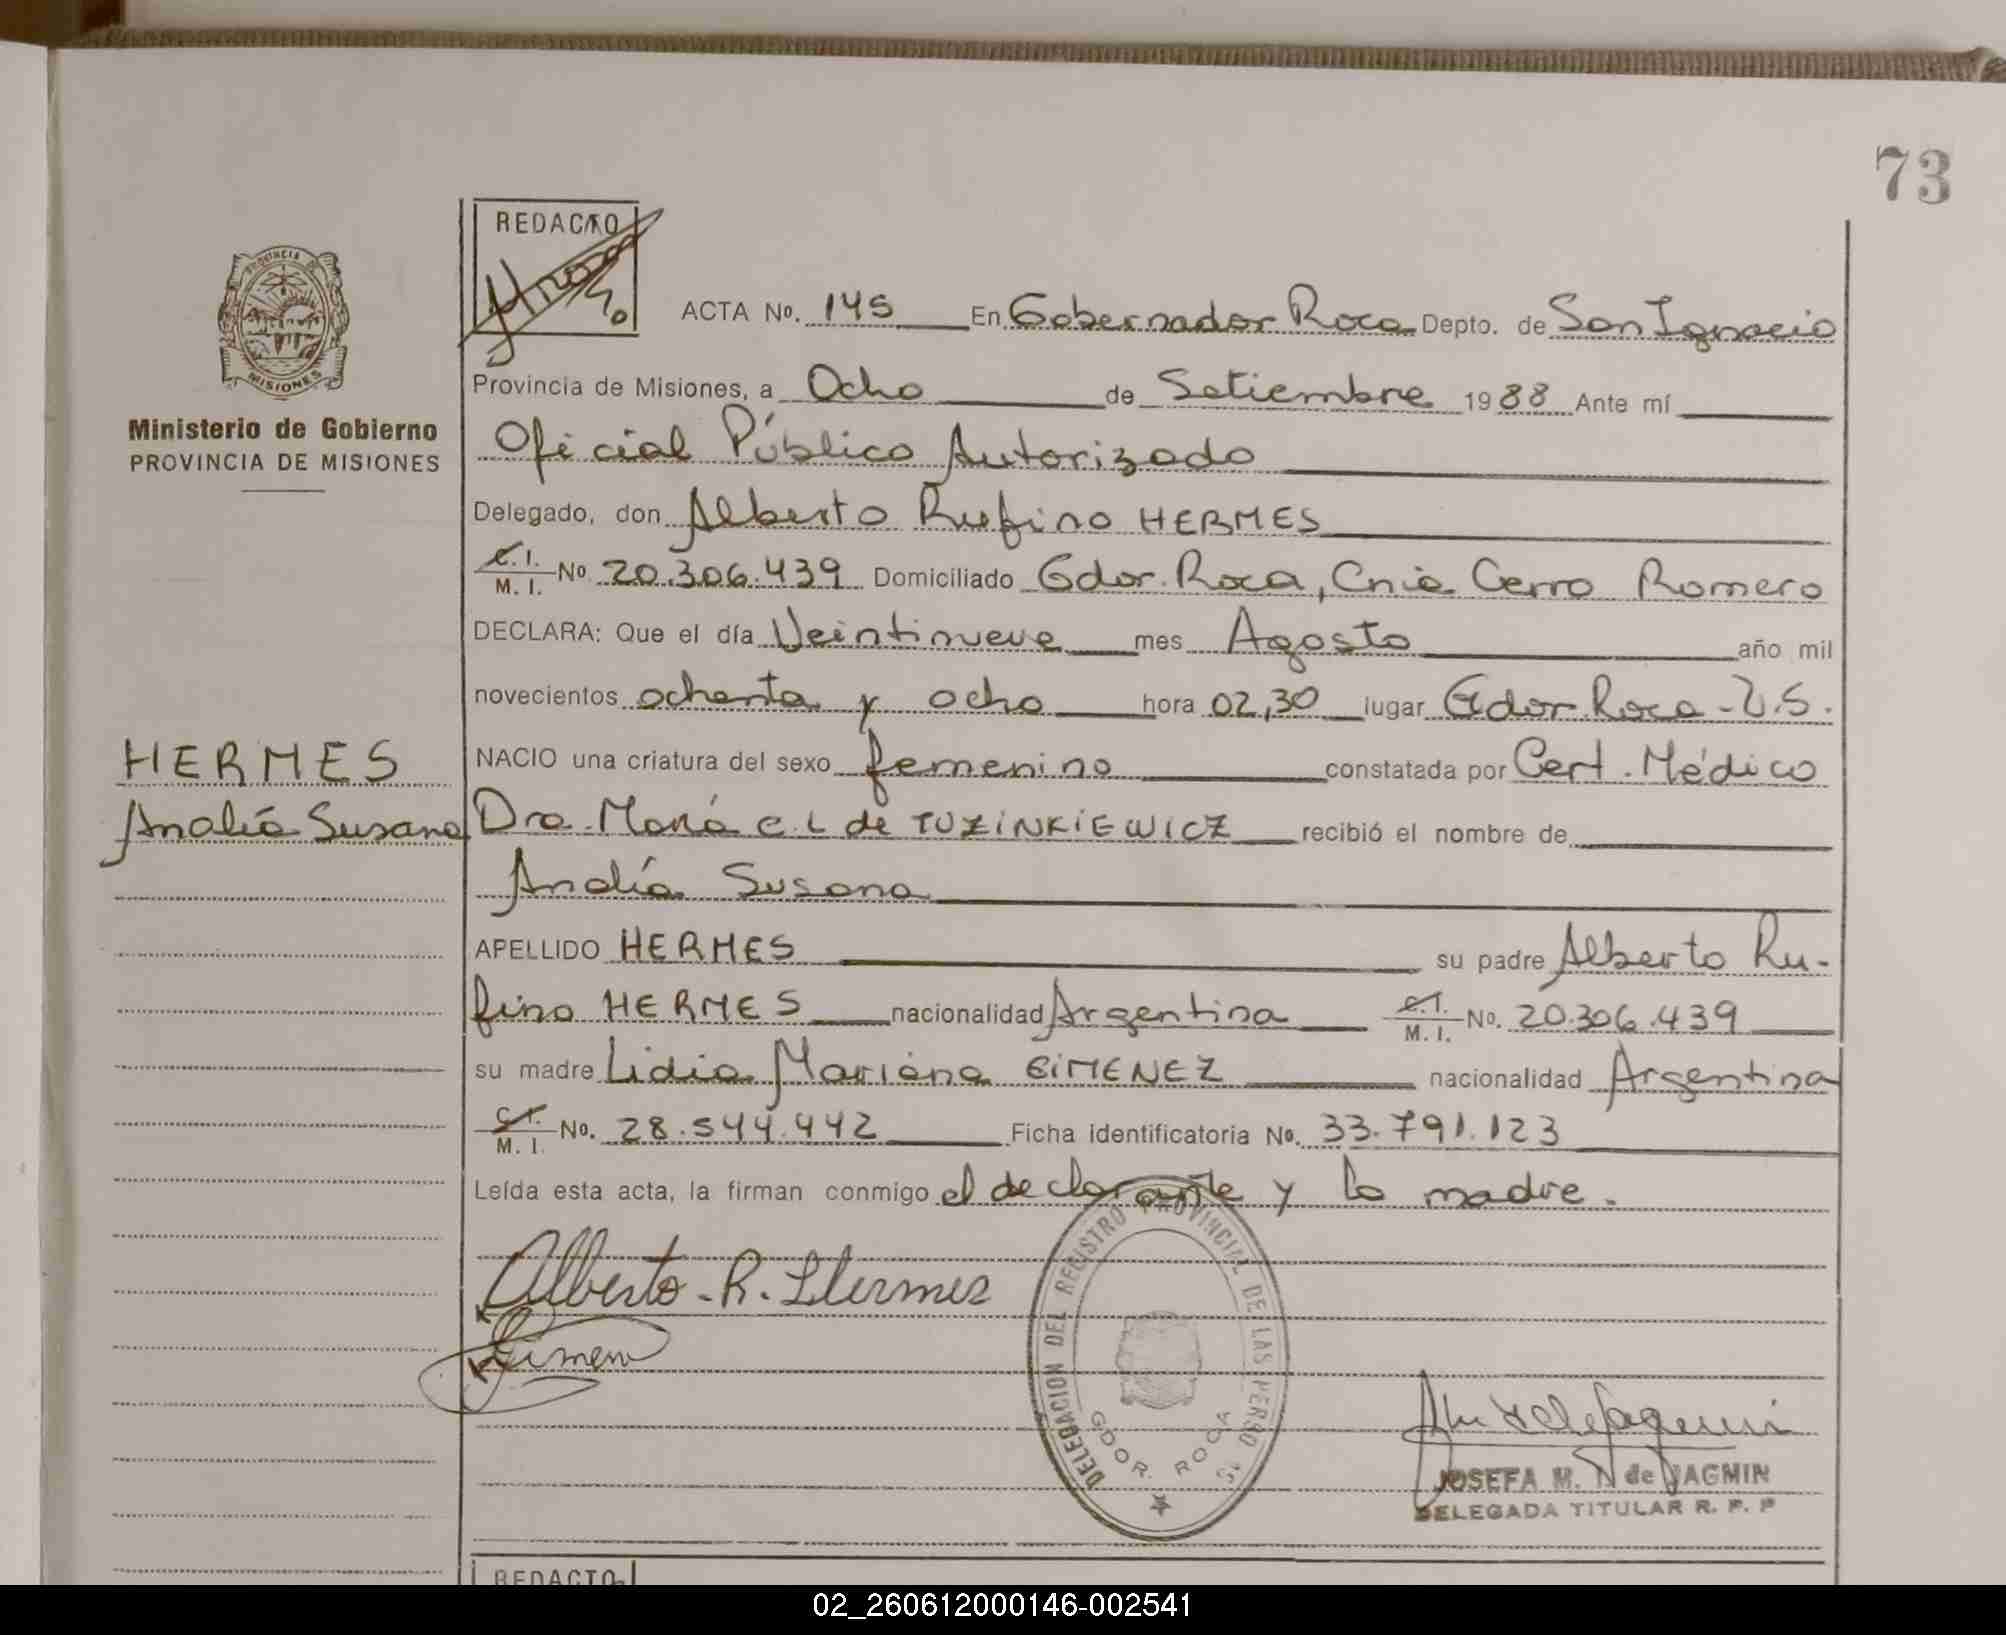 73
REDACTO
PROVINCIA DE
MISIONES
Ministerio de Gobierno
PROVINCIA DE MISIONES
ACTA No. 145 En Gobernador Roca Depto. de San Ignacio
Provincia de Misiones, a Ocho de Setiembre 1988 Ante mí
Oficial Público Autorizado
Delegado, don Alberto Rufino HERMES
C.I. M. I. No 20.306.439 Domiciliado Gdor. Roca, Cnia Cerro Romero
DECLARA: Que el día Veintinueve mes Agosto año mil
novecientos ochenta y ocho hora 02,30 lugar Gdor. Roca - U.S.
NACIO una criatura del sexo femenino constatada por Cert. Médico
HERMES
Analía Susana
Dra. María C. L de TUZINKIEWICZ recibió el nombre de
Analía Susana
APELLIDO HERMES su padre Alberto Ru-
fino HERMES nacionalidad Argentina C.I. M. I. No. 20.306.439
su madre Lidia Mariana GIMENEZ nacionalidad Argentina
C.I. M. I. No. 28.544.442 Ficha identificatoria No. 33.791.123
Leída esta acta, la firman conmigo el declarante y la madre.
Alberto - R. Hermes
DELEGACION DEL REGISTRO PROVINCIAL DE LAS PERSONAS
GDOR. ROCA
JOSEFA M. de JAGMIN
DELEGADA TITULAR R. P. P
REDACTO
02_260612000146-002541